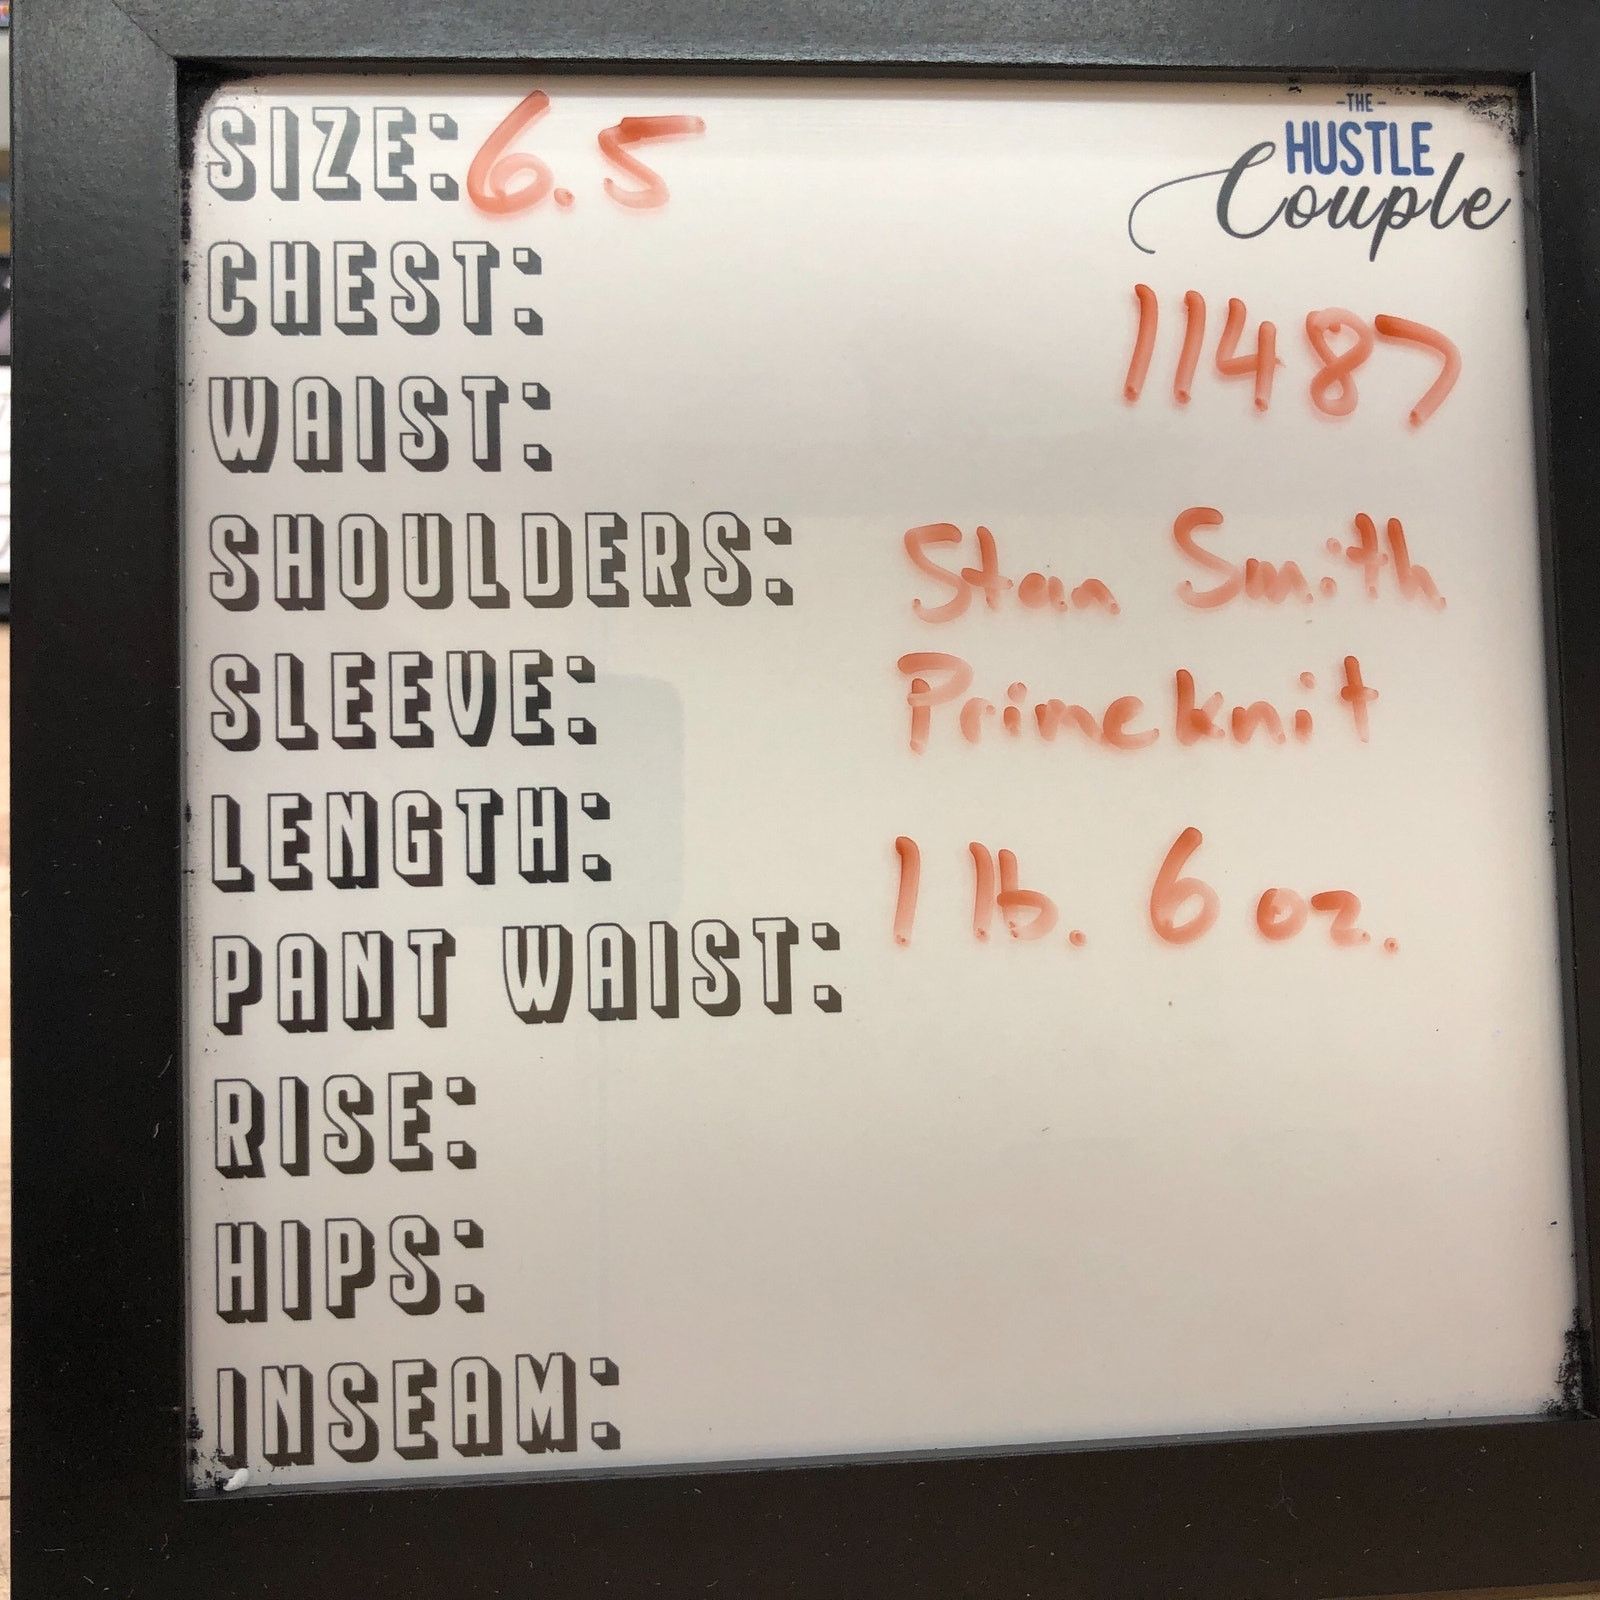 SIZE: 6.5
-THE-
HUSTLE
Couple
CHEST:
11487
WAIST:
SHOULDERS:
Stan Smith
SLEEVE:
Primeknit
LENGTH:
1 lb. 6 oz.
PANT WAIST:
RISE:
HIPS:
INSEAM: